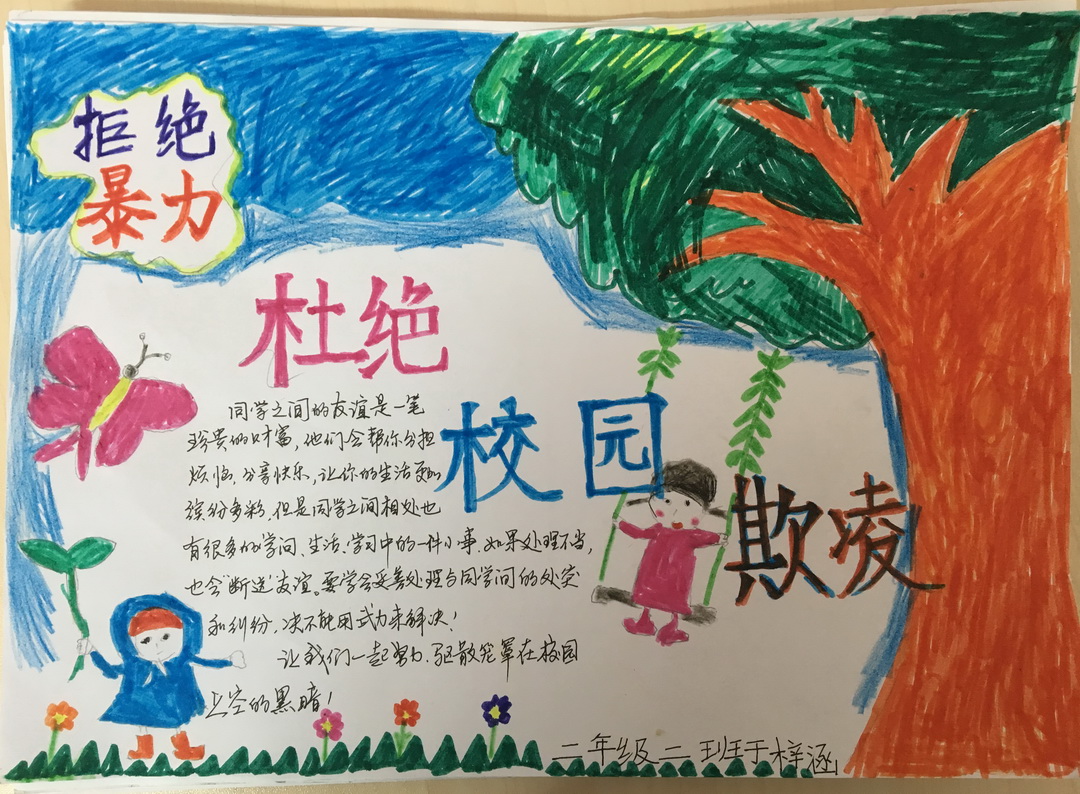 拒绝
暴力
杜绝
校园
欺凌
同学之间的友谊是一笔
珍贵的财富，他们会帮你分担
烦恼，分享快乐，让你的生活更加
缤纷多彩，但是同学之间相处也
有很多的学问、生活、学习中的一件小事，如果处理不当，
也会"断送"友谊。要学会妥善处理与同学间的处交
和纠纷，决不能用武力来解决！
让我们一起努力，驱散笼罩在校园
上空的黑暗！
二年级二班于梓涵